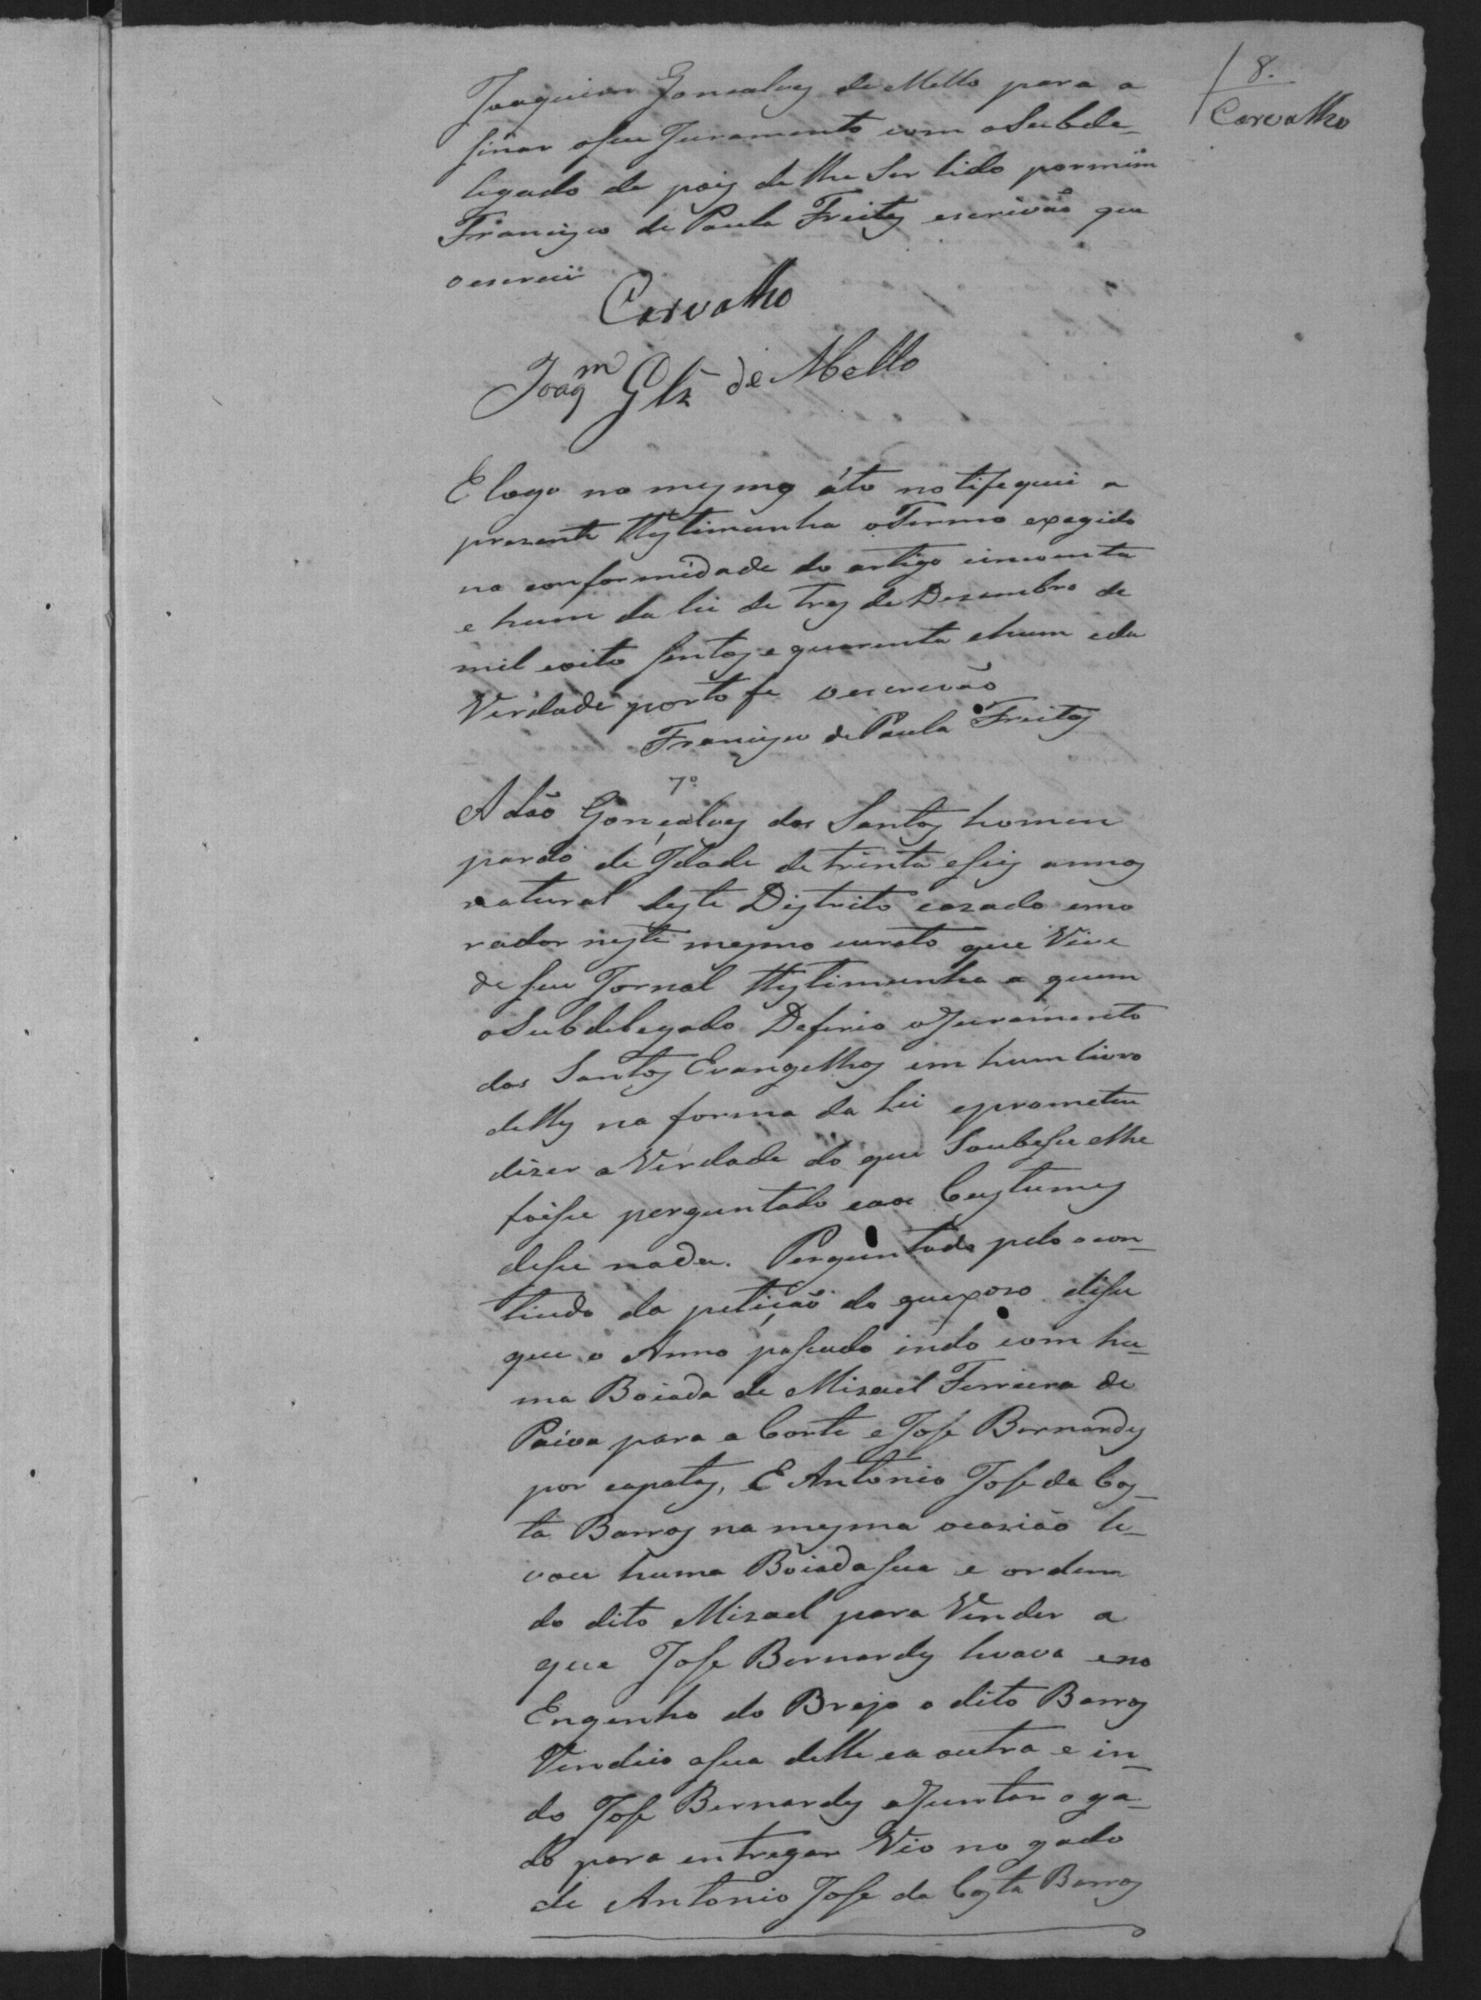 8.
Carvalho
Joaquim Gonçalves de Mello para a
sinar oseu Juramento com oSubde-
legado de pois de lhe Ser lido pormim
Francisco de Paula Freitas escrivão que
oescrevi
Carvalho
Joaqm Glz de Mello
E logo no mesmo áto notifequei a
prezente testimunha oTermo exegido
na conformidade do artigo cincoenta
e hum da lei de tres de Dezembro de
mil eoito sentos e quarenta ehum eda
Verdade porto fe oescrevão
Francisco de Paula Freitas
7º
Adão Gonçalves dos Santos homem
pardo de Idade de trinta eseis annos
natural deste Distrito cazado emo
rador neste mesmo curato que Vive
de seu Jornal testimunha a quem
oSubdelegado Deferio oJuramento
dos Santos Evangelhos em hum livro
delles na forma da Lei eprometeu
dizer a Verdade do que Soubesse elhe
fosse perguntado eaos Custumes
desse nada. Perguntado pelo ocon-
tiudo da petição do quexozo disse
que o Anno passado indo com hu-
ma Boiada de Mizael Ferreira de
Paiva para a Corte e Jose Bernardes
por capatas, E Antonio Jose da Cos-
ta Barros na mesma ocazião le-
vou huma Boiada sua e ordem
do dito Mizael para Vender a
que Jose Bernardes levava eno
Engenho do Brejo o dito Barros
Vendeio asua delle ea outra e in-
do Jose Bernardes aJuntar o ga-
do para entregar Vio no gado
de Antonio Jose da Costa Barros